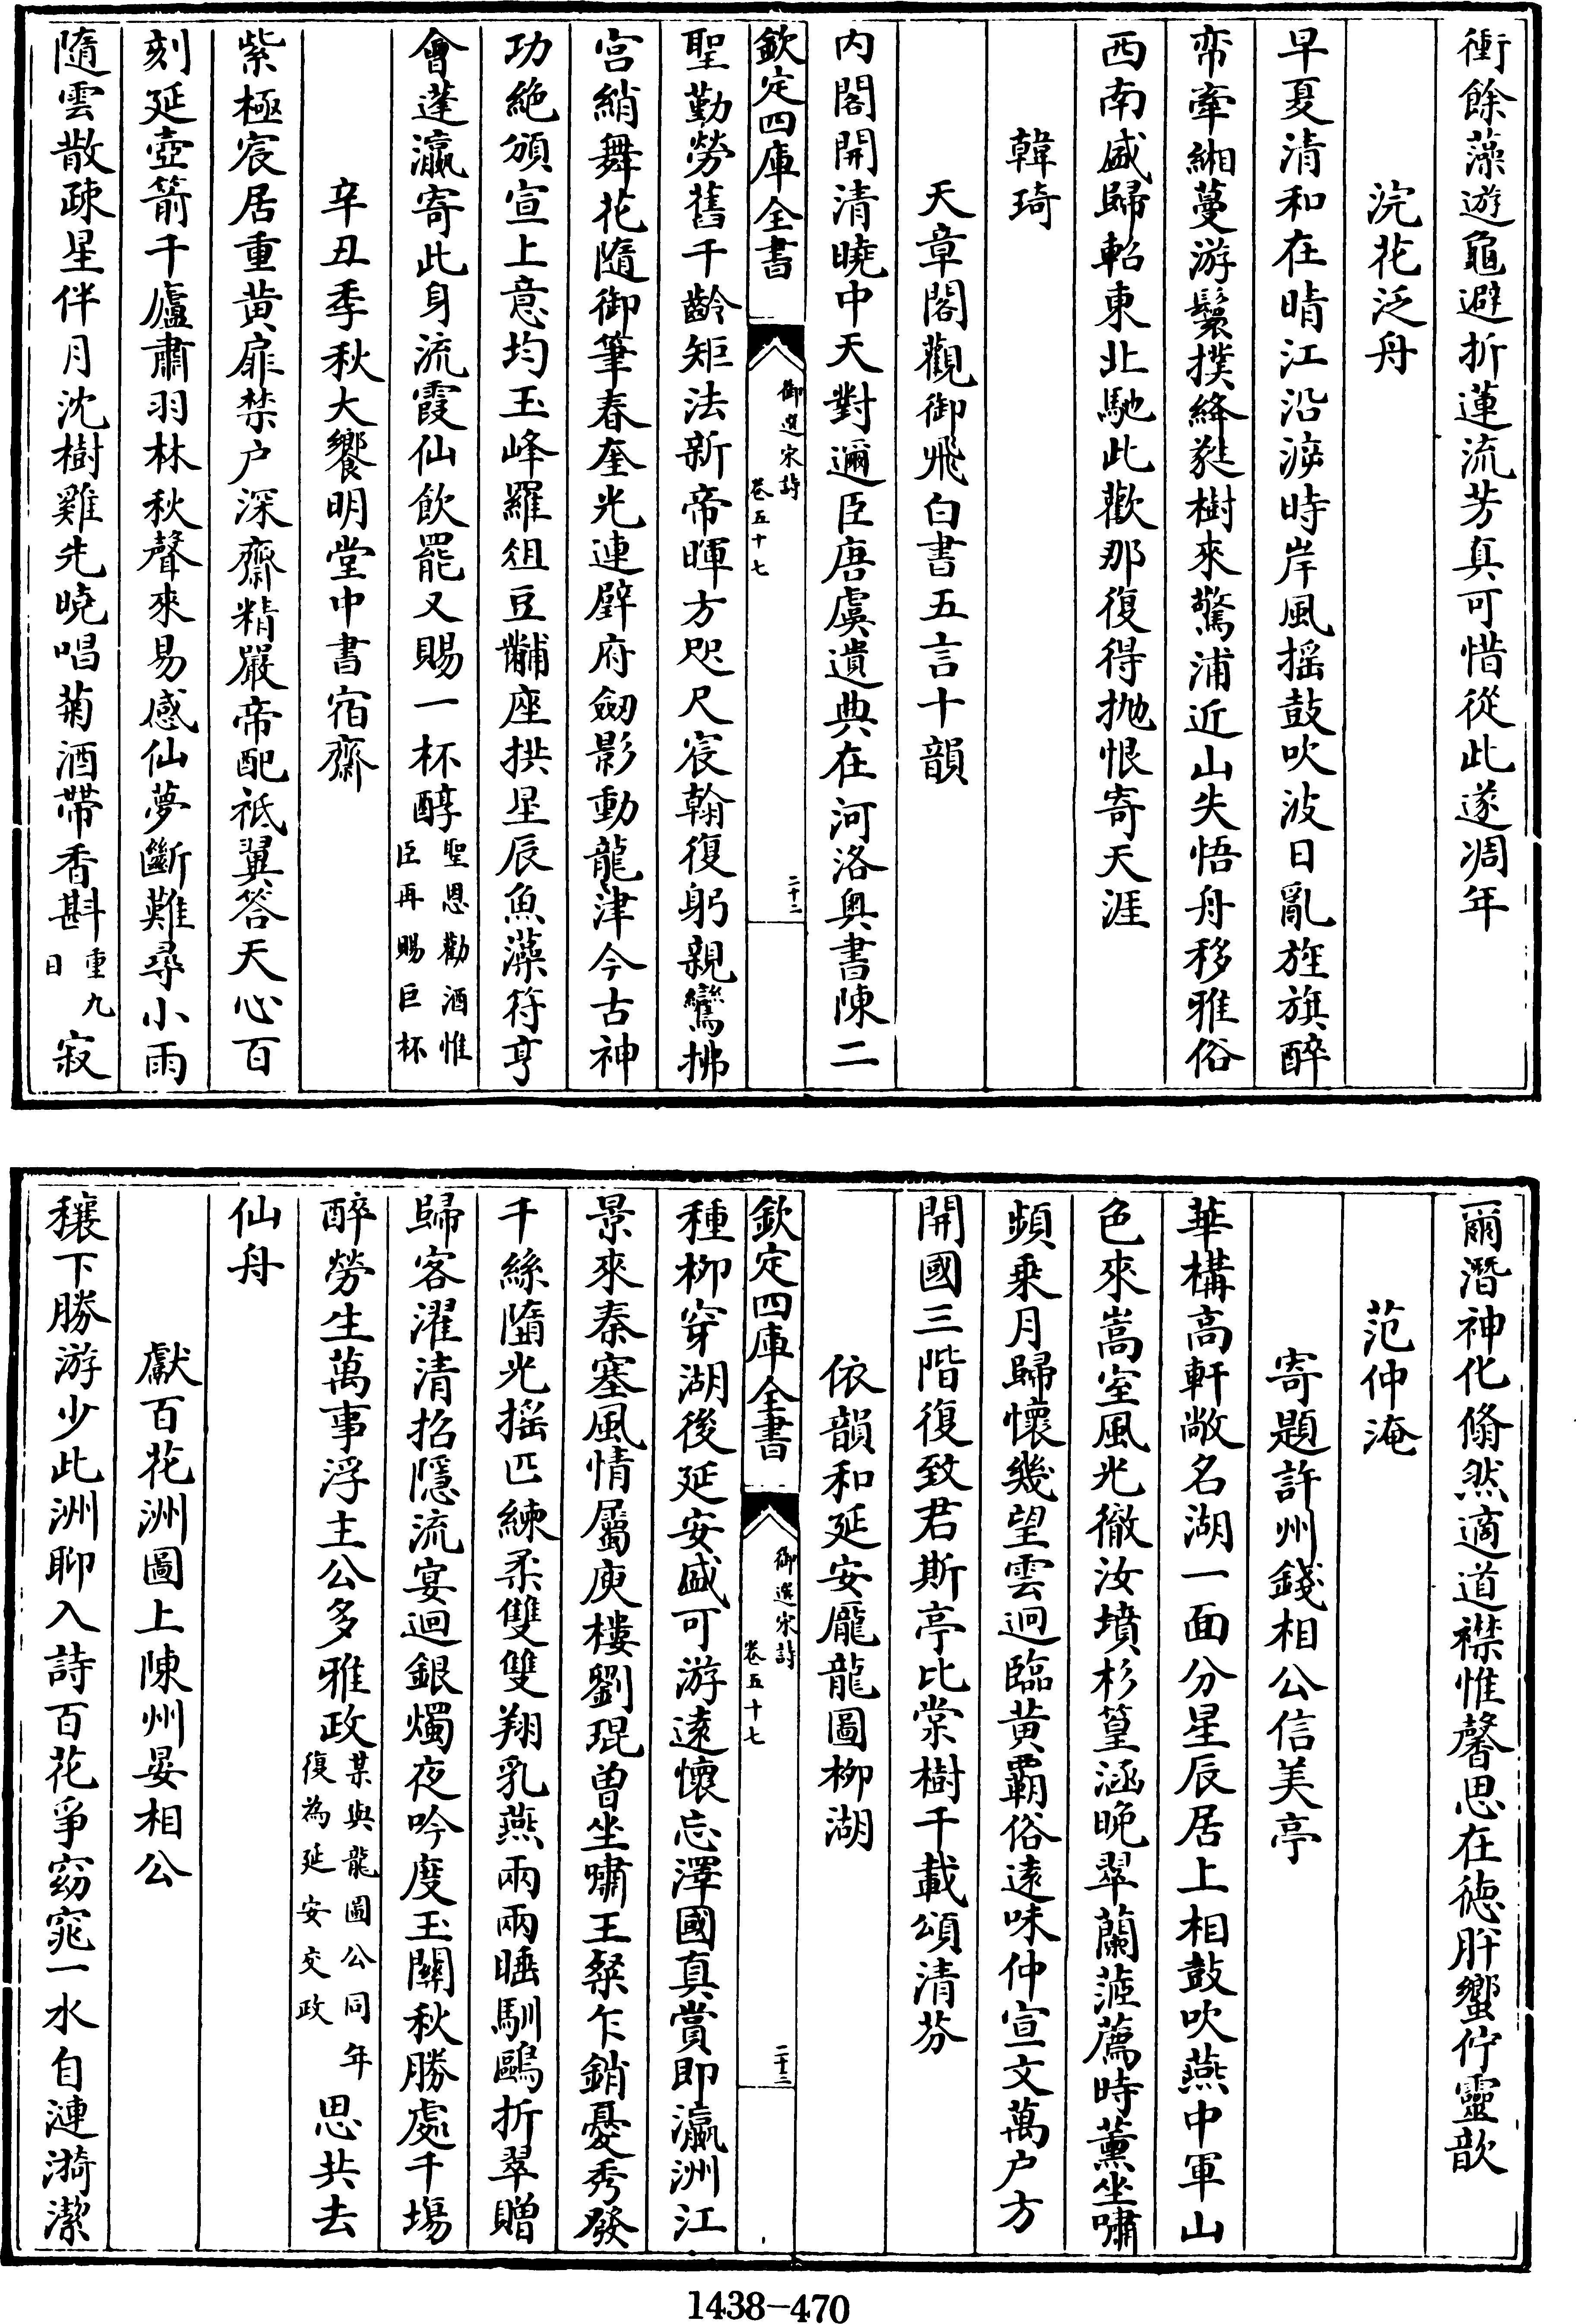 衝餘藻遊龜避折蓮流芳真可惜從此遂凋年
浣花泛舟
早夏清和在晴江沿泝時岸風揺鼓吹波日亂旌旗醉
帘牽緗蔓游鬟撲絳蕤樹來驚浦近山失悟舟移雅俗
西南盛歸軺東北馳此歡那復得抛恨寄天涯
韓琦
天章閣觀御飛白書五言十韻
内閣開清曉中天對邇臣唐虞遺典在河洛奥書陳二
聖勤勞舊千齡矩法新帝暉方咫尺宸翰復躬親鸞拂
宫綃舞花隨御筆春奎光連壁府劒影動龍津今古神
功絶頒宣上意均玉峰羅俎豆黼座拱星辰魚藻符亨
會蓬瀛寄此身流霞仙飲罷又賜一杯醇聖恩勸酒惟臣再賜巨杯
辛丑季秋大饗明堂中書宿齋
紫極宸居重黄扉禁户深齋精嚴帝配祗翼答天心百
刻延壺箭千廬肅羽林秋聲來易感仙夢斷難尋小雨
隨雲散疎星伴月沈樹雞先曉唱菊酒帶香斟重九日寂
欽定四庫全書
御選宋詩
卷五十七
二十二
爾潛神化翛然適道襟惟馨思在徳肸蠁佇靈歆
范仲淹
寄題許州錢相公信美亭
華構高軒敞名湖一面分星辰居上相鼓吹燕中軍山
色來嵩室風光徹汝墳杉篁涵晚翠蘭茝薦時薰坐嘯
頻乗月歸懷幾望雲迥臨黄霸俗遠味仲宣文萬户方
開國三階復致君斯亭比棠樹千載頌清芬
依韻和延安龎龍圖柳湖
種柳穿湖後延安盛可游逺懷忘澤國真賞即瀛洲江
景來秦塞風情屬庾樓劉琨曾坐嘯王粲乍銷憂秀發
千絲墮光揺匹練柔雙雙翔乳燕兩兩睡馴鷗折翠贈
歸客濯清招隱流宴迴銀燭夜吟度玉關秋勝處千塲
醉勞生萬事浮主公多雅政某與龍圖公同年復為延安交政思共去
仙舟
獻百花洲圖上陳州晏相公
穰下勝游少此洲聊入詩百花爭窈窕一水自漣漪潔
欽定四庫全書
御選宋詩
卷五十七
二十三
1438-470